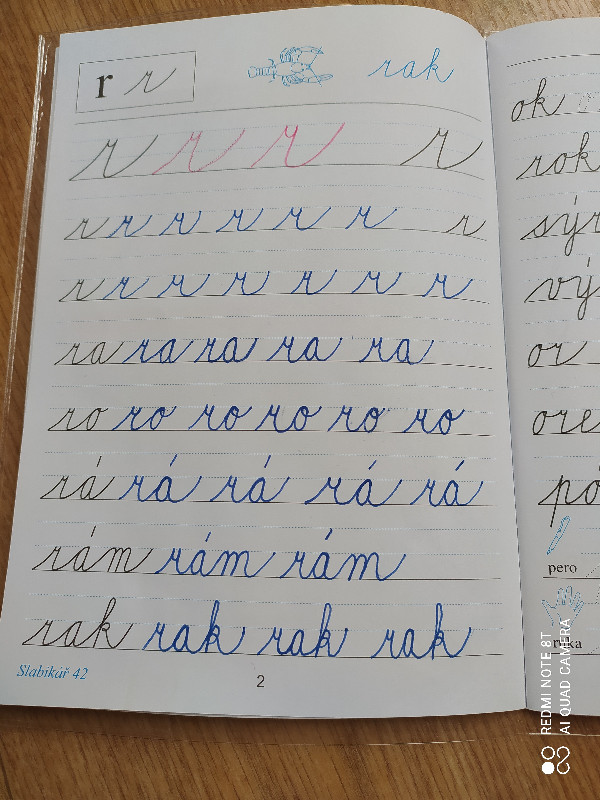 r r rak
r r r r
r r r r r r r
r r r r r r r
ra ra ra ra ra
ro ro ro ro ro ro
rá rá rá rá rá
rám rám rám
rak rak rak rak
Slabikář 42
2
ok
rok
sýr
vý
or
ore
pó
pero
ruka
REDMI NOTE 8T
AI QUAD CAMERA